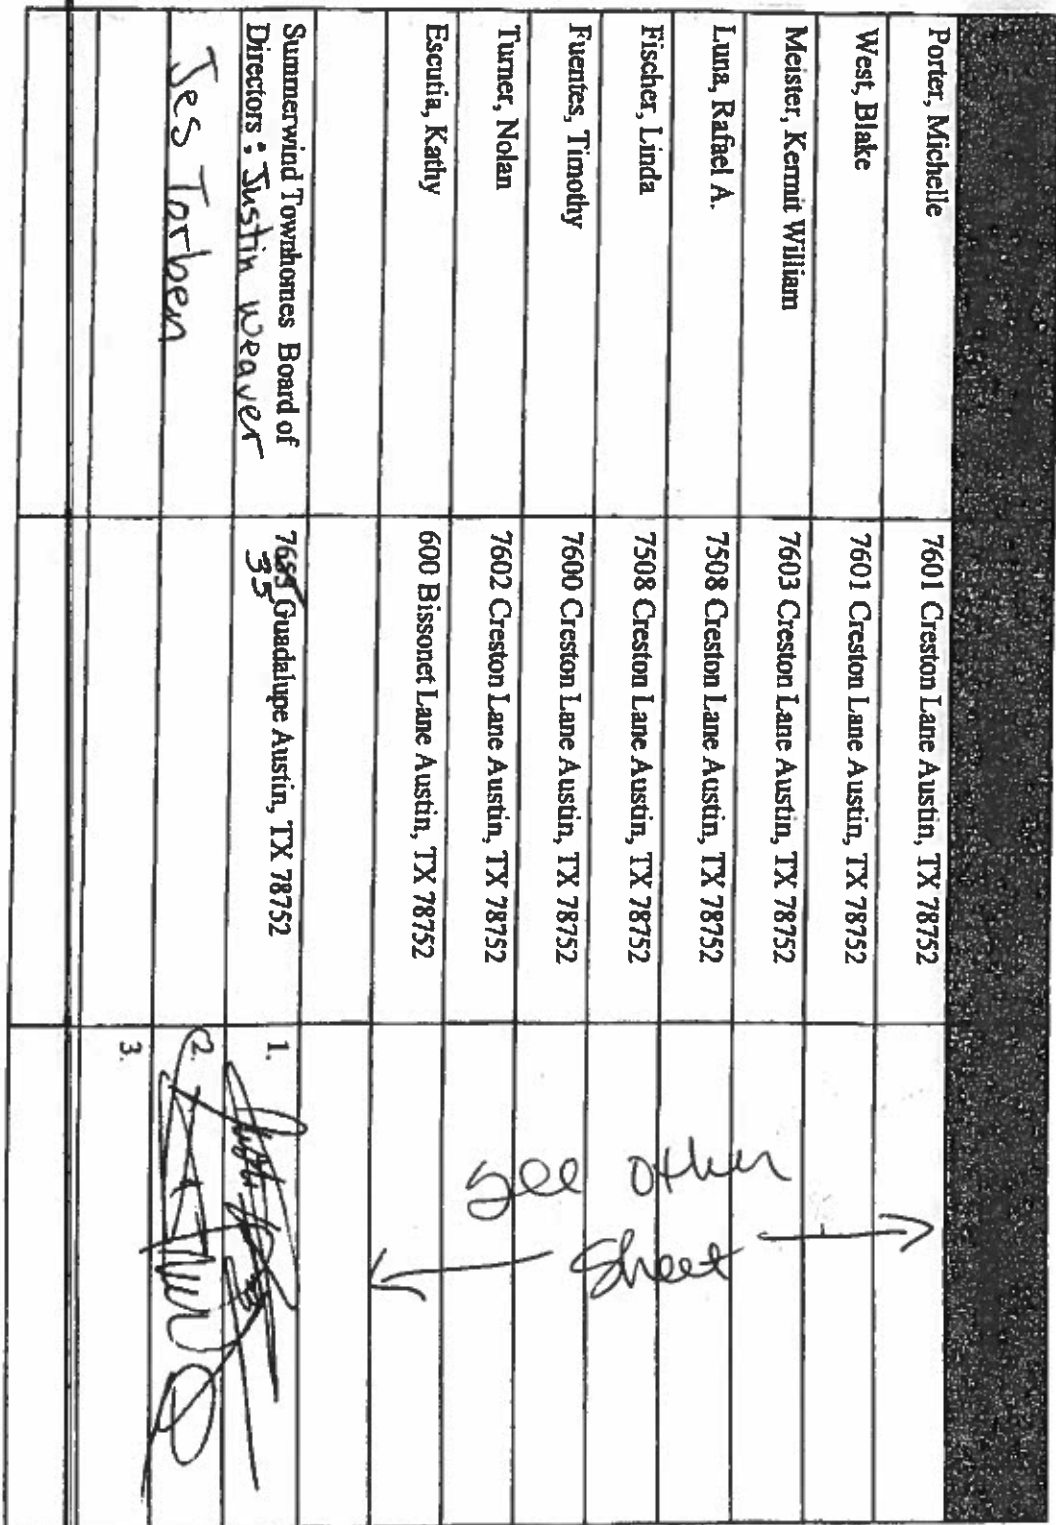 Porter, Michelle 7601 Creston Lane Austin, TX 78752
West, Blake 7601 Creston Lane Austin, TX 78752
Meister, Kermit William 7603 Creston Lane Austin, TX 78752
Luna, Rafael A. 7508 Creston Lane Austin, TX 78752
Fischer, Linda 7508 Creston Lane Austin, TX 78752
Fuentes, Timothy 7600 Creston Lane Austin, TX 78752
Turner, Nolan 7602 Creston Lane Austin, TX 78752
Escutia, Kathy 600 Bissonet Lane Austin, TX 78752
see other
sheet
Summerwind Townhomes Board of
Directors: Justin Weaver
Guadalupe Austin, TX 78752
35
1.
Jes Torben
2.
3.